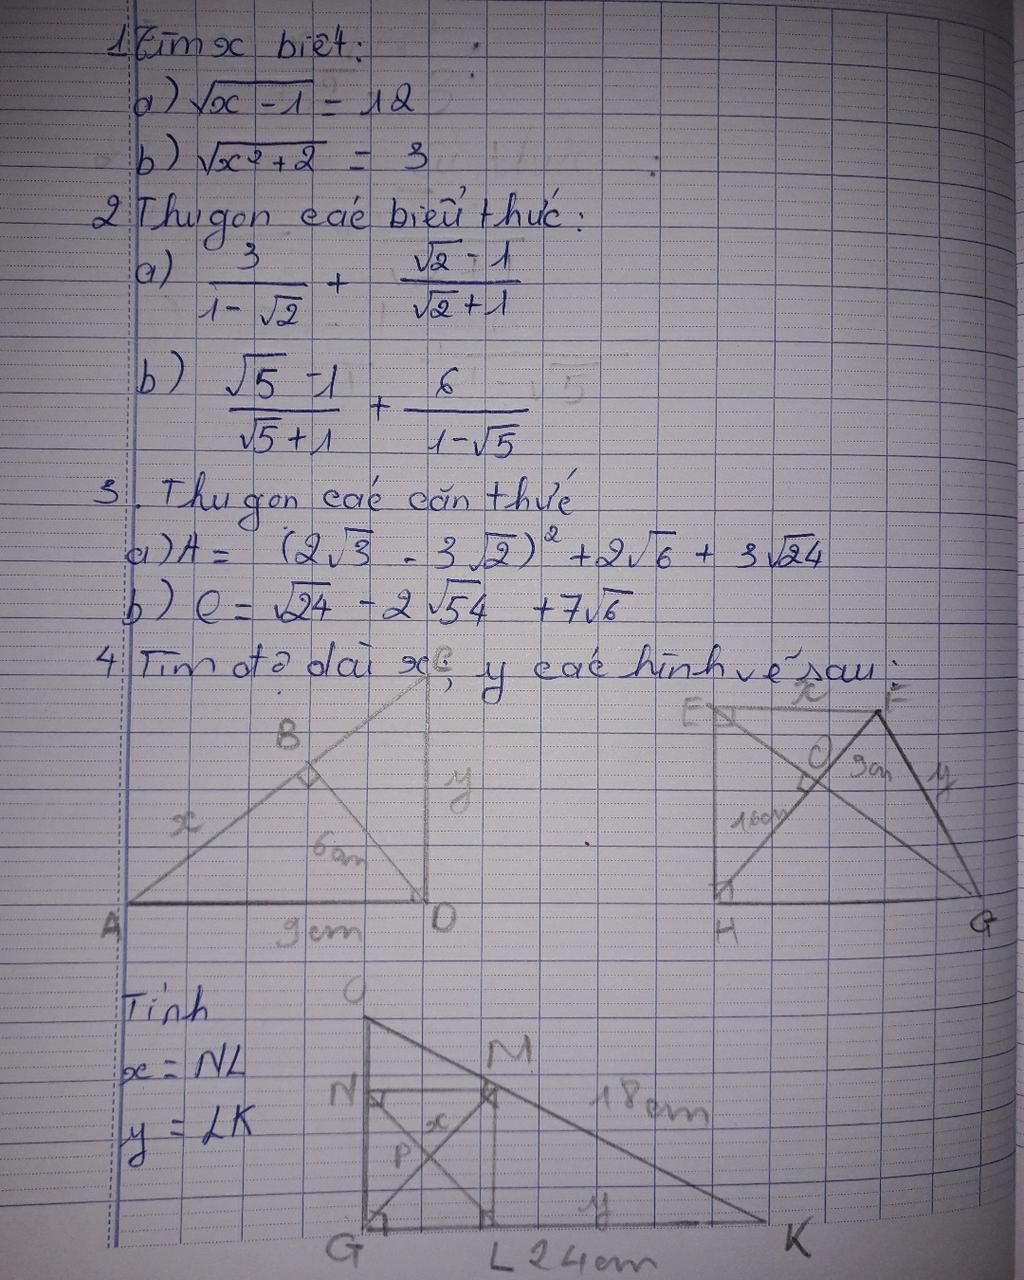 1 Tìm x biết:
a) √(x - 1) = 12
b) √(x² + 2) = 3
2 Thu gọn các biểu thức:
a) 3/(1 - √2) + (√2 - 1)/(√2 + 1)
b) (√5 - 1)/(√5 + 1) + 6/(1 - √5)
3. Thu gọn các căn thức
a) A = (2√3 - 3√2)² + 2√6 + 3√24
b) C = √24 - 2√54 + 7√6
4 Tìm độ dài x; y các hình vẽ sau:
C
B
x
y
6cm
A
9cm
D
E
x
F
O
9cm
y
16cm
H
G
Tính
x = NL
y = LK
N
M
18cm
x
P
y
G
L
24cm
K